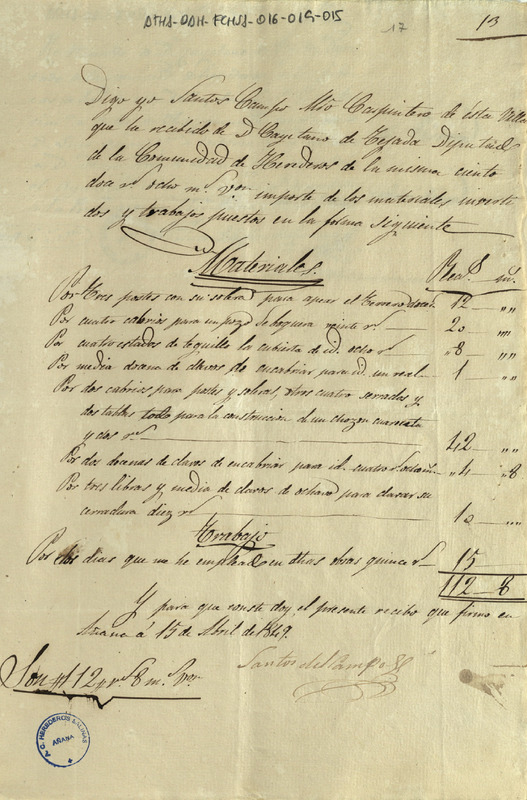 ATHA-DAH-FCHSA-016-019-015
17
13
Digo yo Santos Campo Mro Carpintero de esta Villa
que he recibido de D. Cayetano de Tejada Diputad
de la Comunidad de Herederos de la misma ciento
doce rs ocho ms von importe de los materiales inverti
dos y trabajos puestos en la forma siguiente
Materiales. Reals ms.
Por tres postes con su sobral para apear el terreno doce 12 „„
Por cuatro cabrios para un pozo de hoguera veinte rs 20 „„
Por cuatro estados de teguillo la cubierta de id. ocho rs „8 „„
Por media docena de clavos de encabriar para id. un real 1 „„
Por dos cabrios, para postes y sobras, otros cuatro serrados y
dos tablas todo para la construcion de un chozon cuarenta
y dos rs 42 „„
Por dos docenas de clavos de encabriar para id. cuatro rs ocho ms „4 „8
Por tres libras y media de clavos de ochavo para clavar su
cerradura diez rs 10 „„
Trabajo
Por dos dias que me he empleado en dhas obras quince rs 15
112 - 8
Y para que conste doy el presente recibo que firmo en
Añana á 15 de Abril de 1849.
Santos del Campo
Son 112 rs 8 ms von
A. C. HEREDEROS SALINAS
AÑANA